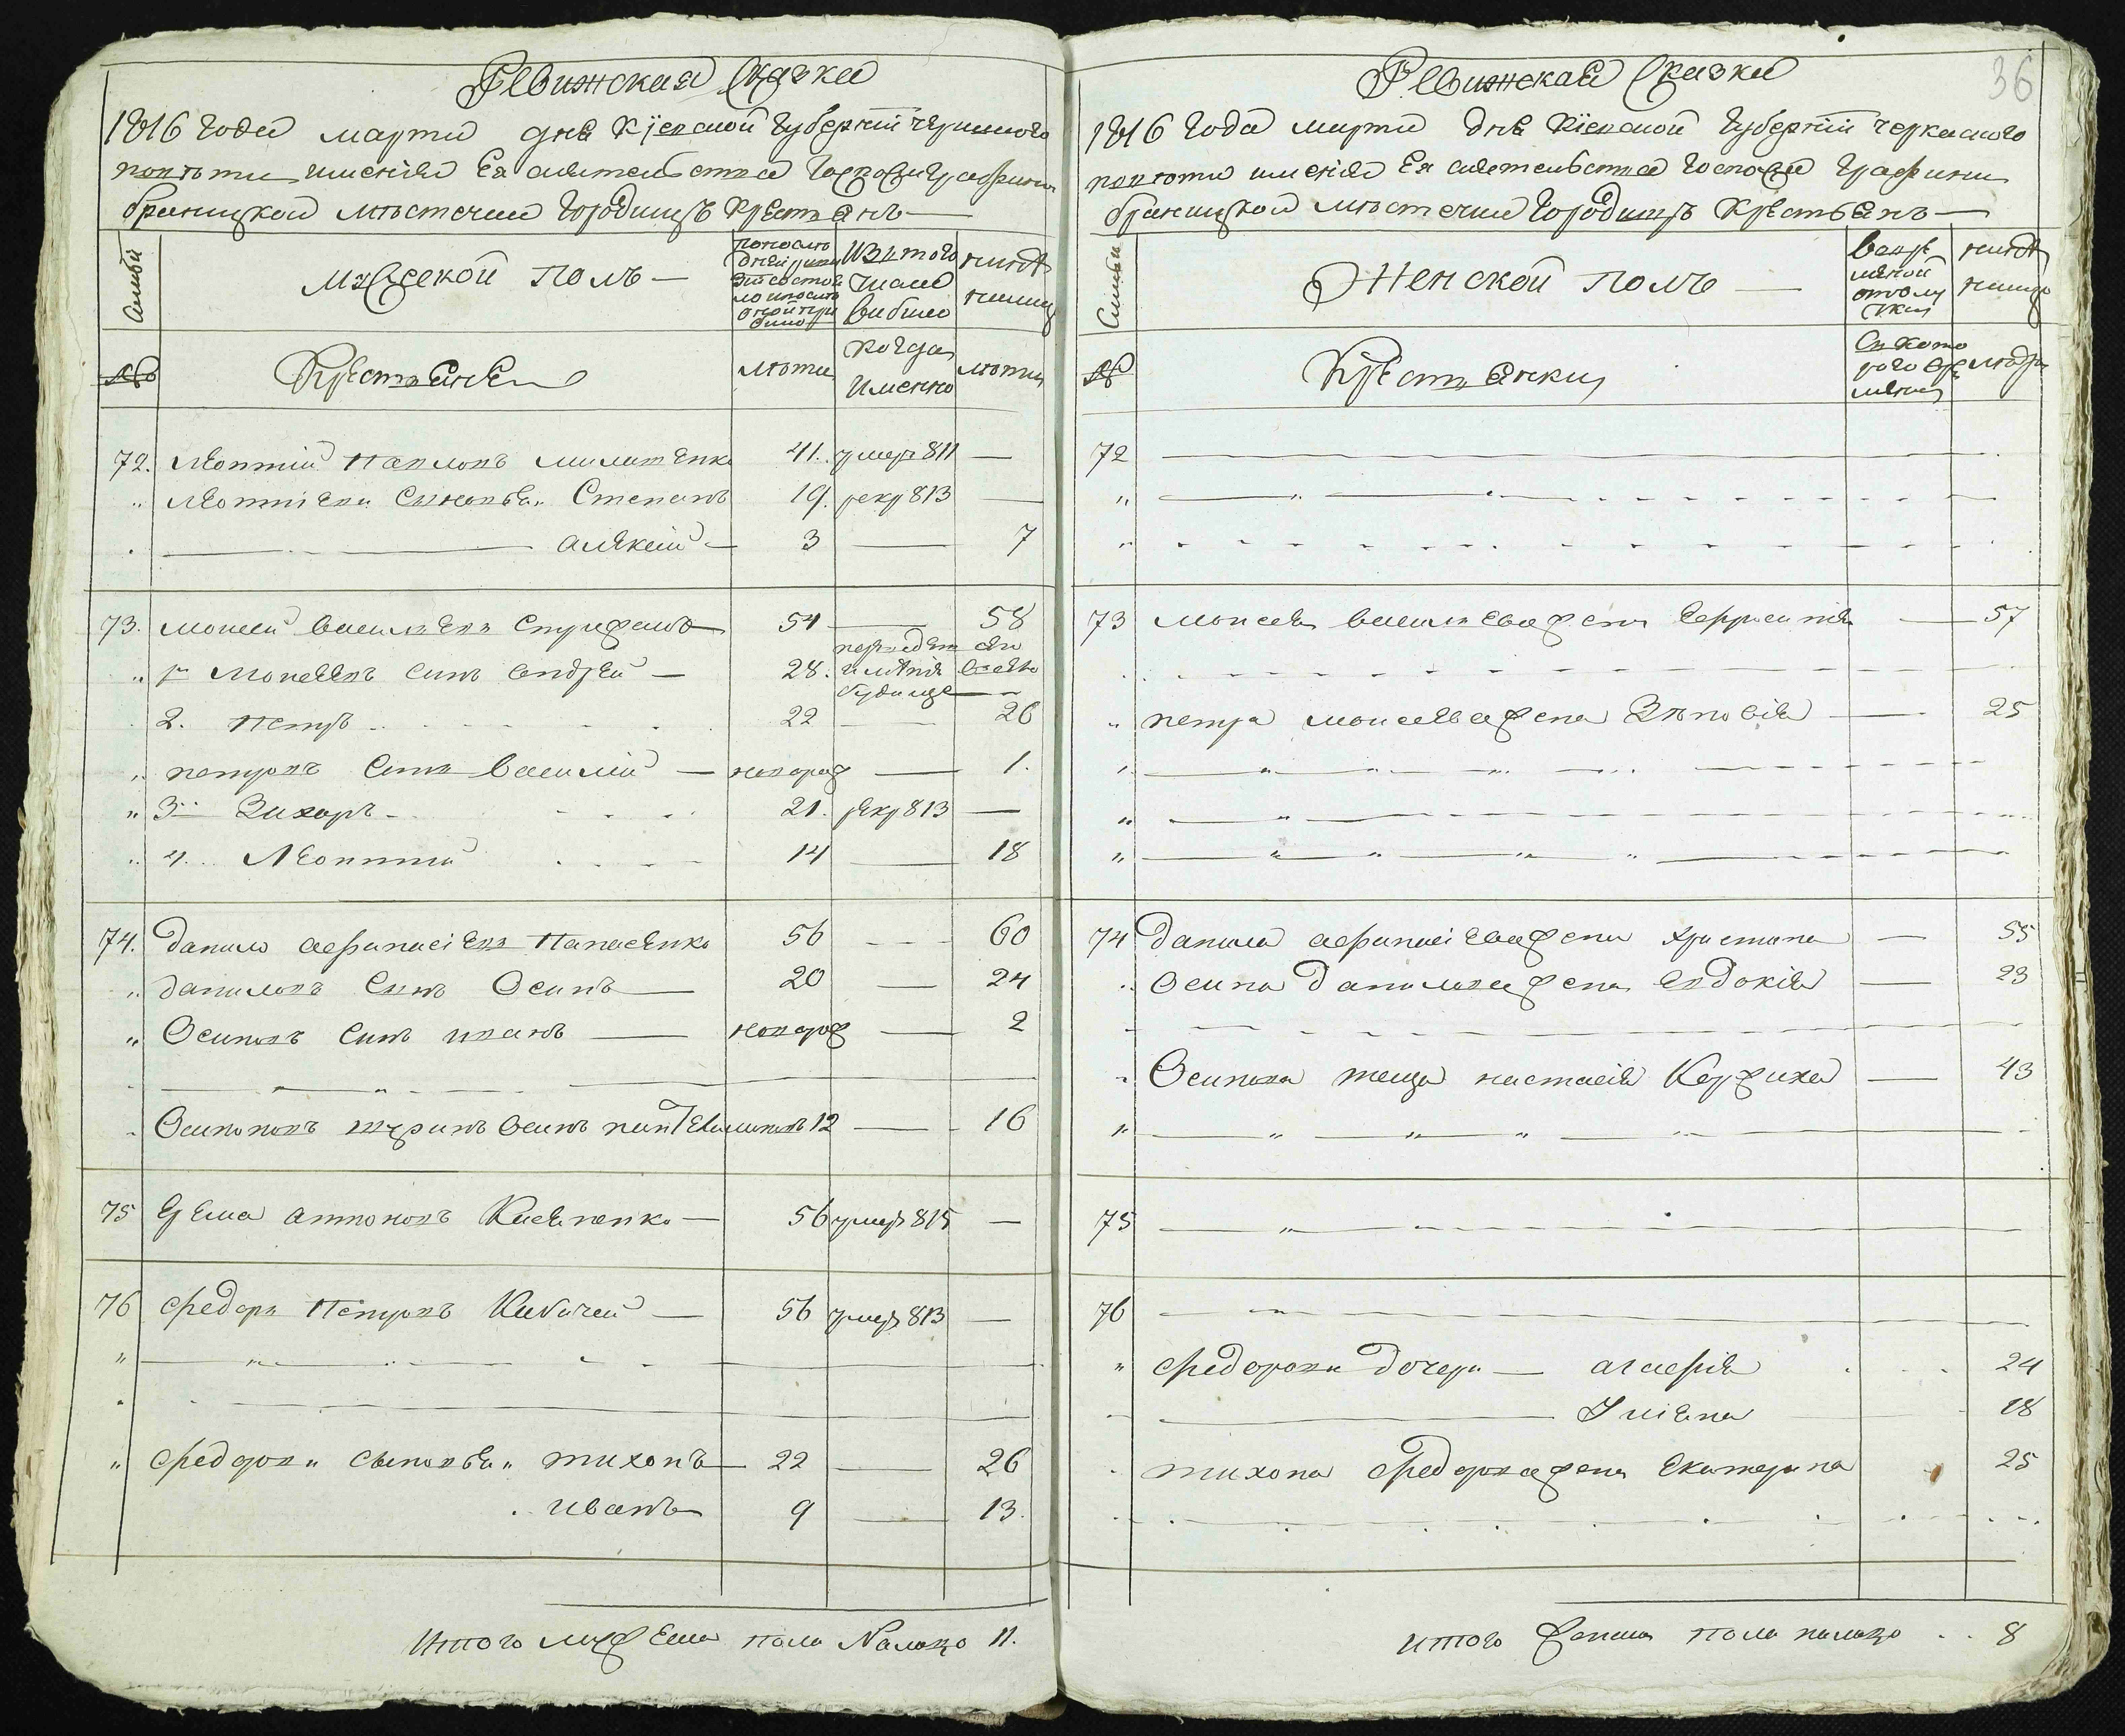 Ревижская Сказка
1816 года марта дня Кіевской губерніи Черкаского
повѣта имѣнія Ея сиятельства Госпожи Графини
браницкой мѣстечка Городищъ Крестьянъ
Мужеской полъ
Семьи
Изътого
числа
выбыло
нынѣ
налицо
№
Крестьяне
лѣта
когда
именно
лѣта
72. Леонтій Павловъ 41. умер 811 —
" Леонтіевы Сыновья. Степанъ 19. рекр 813 —
Алексій — 3 — 7
73. Моисей Васильевъ 54 — 58
" 1й Моисеевъ Сынъ Андрей — 28.
2. Петръ 22 — 26
" петровъ Сынъ Василій — новорож — 1.
" 3 Захаръ 21. рекр 813 —
" 4. Леонтій 14 — 18
74. Данило Афанасіевъ Панасенко 56 — 60
" Даниловъ Сынъ Осипъ — 20 — 24
" Осиповъ Сынъ Иванъ — новорож — 2
Осиповъ шуринъ 12 — 16
75 Ерема Антоновъ 56 умер 815 —
76 Федоръ Петровъ 56 умер 813 —
" Федоровы сыновья " Тихонъ 22 — 26
Иванъ 9 — 13.
Итого мужеска пола налицо 11.
36
Ревижская Сказка
1816 года марта дня Кіевской губерніи Черкаского
повѣта имѣнія Ея сиятельства Госпожи Графини
браницкой мѣстечка Городищъ Крестьянъ
Женской полъ
Семьи
нынѣ
налицо
№
Крестьянки
лѣта
72
73 Моисея Васильева жена Ефросинія — 57
" петра Моисеева жена Зѣновія — 25
74 Данила Афанасіева жена Христина — 55
Осипа Данилова жена Евдокія — 23
Осипова теща Настасія — 43
75
76
" Федоровы дочери — Агафія 24
Уліяна 18
Тихона Федорова жена Екатерина 25
итого женска пола налицо . . 8